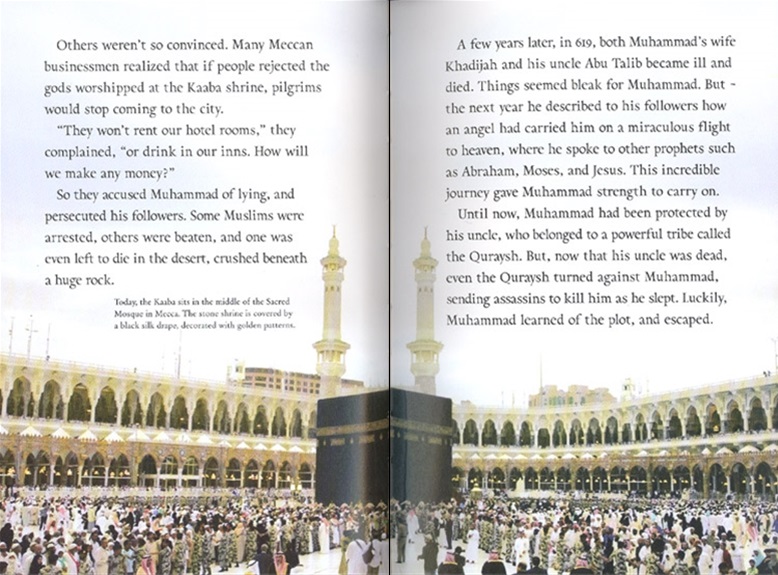 Others weren't so convinced. Many Meccan
businessmen realized that if people rejected the
gods worshipped at the Kaaba shrine, pilgrims
would stop coming to the city.
“They won't rent our hotel rooms,” they
complained, “or drink in our inns. How will
we make any money?”
So they accused Muhammad of lying, and
persecuted his followers. Some Muslims were
arrested, others were beaten, and one was
even left to die in the desert, crushed beneath
a huge rock.
Today, the Kaaba sits in the middle of the Sacred
Mosque in Mecca. The stone shrine is covered by
a black silk drape, decorated with golden patterns.
A few years later, in 619, both Muhammad's wife
Khadijah and his uncle Abu Talib became ill and
died. Things seemed bleak for Muhammad. But –
the next year he described to his followers how
an angel had carried him on a miraculous flight
to heaven, where he spoke to other prophets such
as Abraham, Moses, and Jesus. This incredible
journey gave Muhammad strength to carry on.
Until now, Muhammad had been protected by
his uncle, who belonged to a powerful tribe called
the Quraysh. But, now that his uncle was dead,
even the Quraysh turned against Muhammad,
sending assassins to kill him as he slept. Luckily,
Muhammad learned of the plot, and escaped.